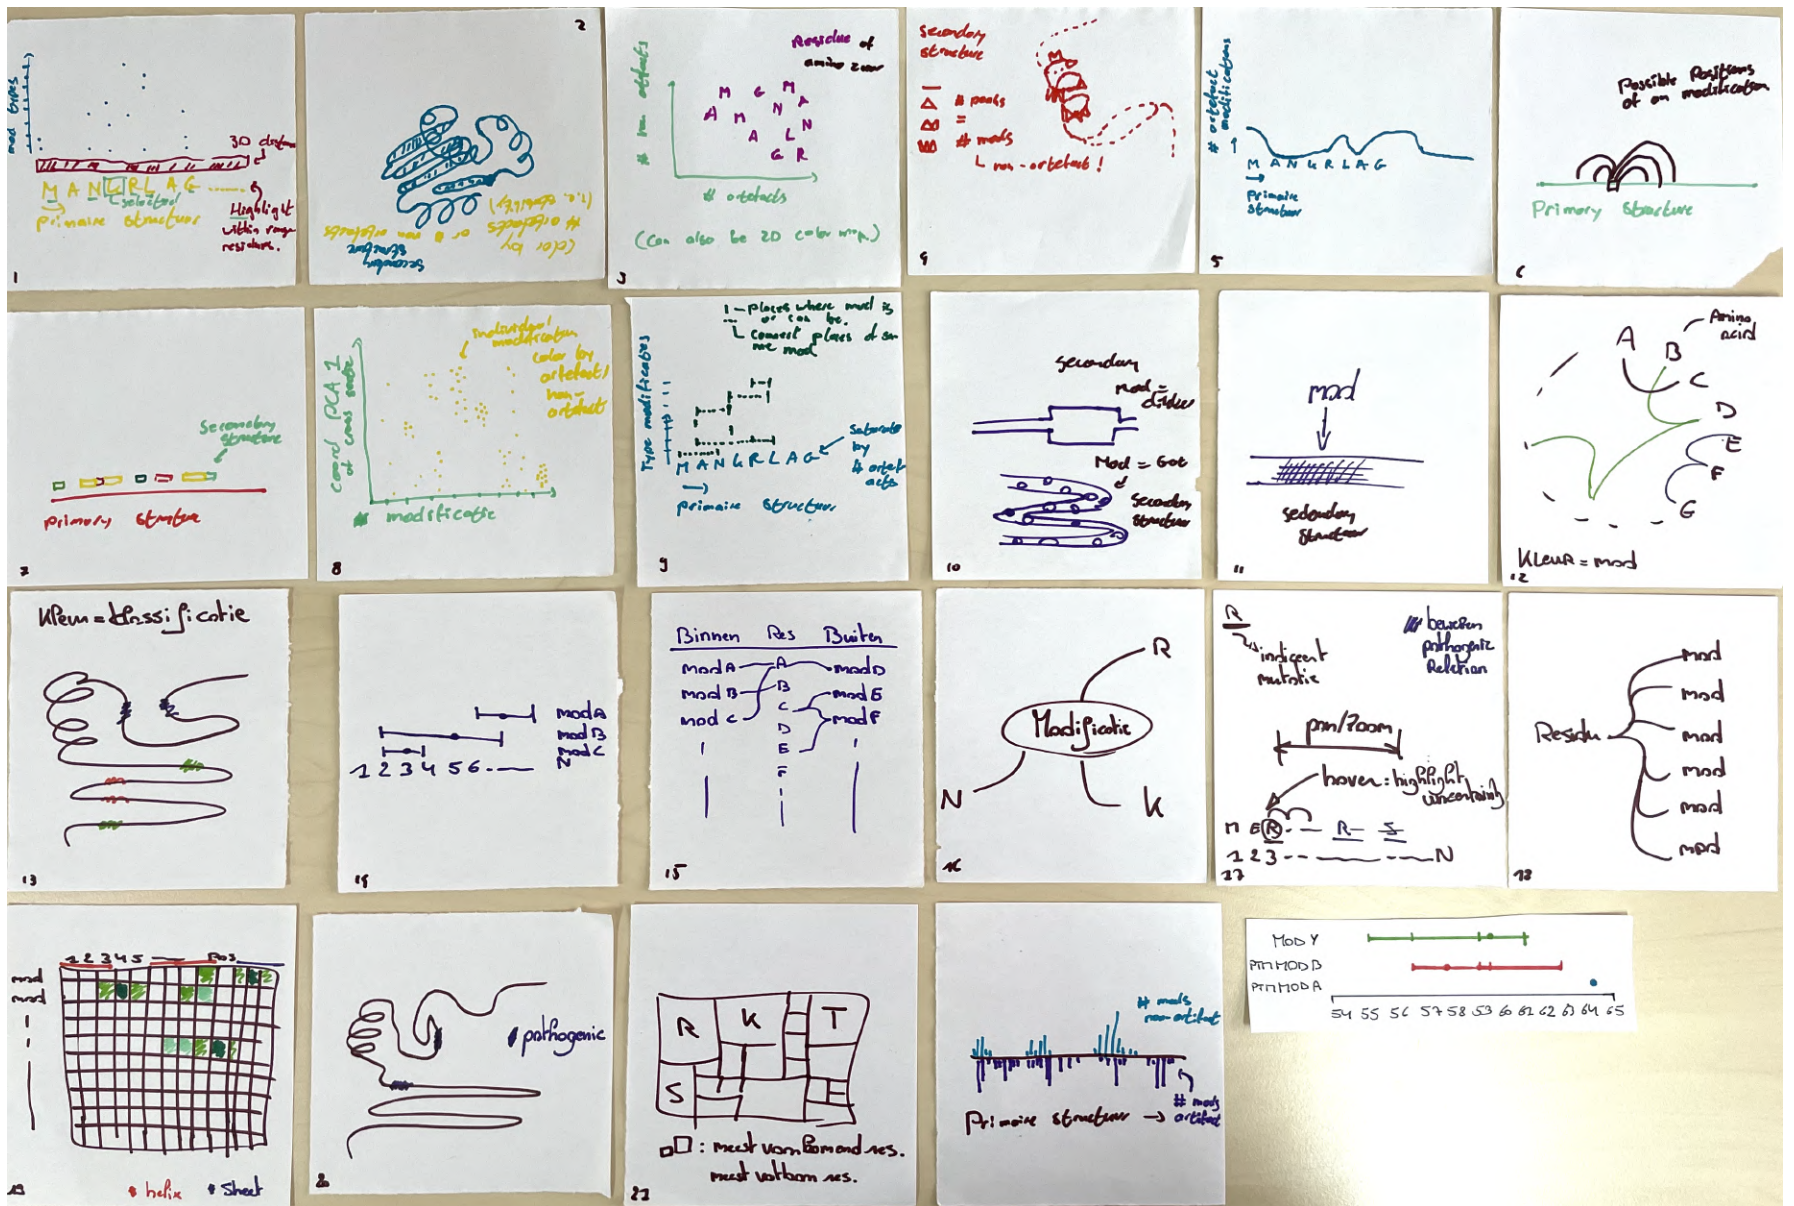 mod types
3D distance
M A N G R L A G
selected
primaire structuur
Highlight
within range
residues.
1
2
color by
# artefacts or # non artefacts
secondary
structure
# non artefacts
Residue of
M G M
A M N A
A L N
G R
# artefacts
(can also be 2D color map.)
3
secondary
structure
# peaks
=
# mods
non-artefact!
4
# artefact
modifications
M A N G R L A G
primaire
structuur
5
Possible Positions
of an modification
Primary Structure
6
Secondary
structure
primary structure
7
individual
modification
color by
artefact/
non-
artefact
coord PCA 1
# modificatie
8
places where mod is
or can be.
connect places of same
mod
Type modificaties
M A N G R L A G
by
# artef
acts
primaire structuur
9
secondary
mod =
Mod =
Secondary
Structuur
10
mod
secondary
structuur
11
Amino
acid
A
B
C
D
E
F
G
Kleur = mod
12
Kleur = klassificatie
13
mod A
mod B
mod C
1 2 3 4 5 6 N
14
Binnen Res Buiten
mod A A mod D
mod B B mod E
mod C C mod F
D
E
F
15
R
Modificatie
N K
16
R
indiceert
mutatie
bewezen
pathogenic
Relation
pan/zoom
hover: highlight
uncertainty
M E R R S
1 2 3 N
17
mod
mod
Residu mod
mod
mod
mod
18
1 2 3 4 5 Pos
mod
mod
helix sheet
19
pathogenic
20
R K T
S
: meest voorkomend res.
meest voorkom res.
21
# mods
non-artifact
# mods
artifact
Primaire structuur
MOD Y
PTM MOD B
PTM MOD A
54 55 56 57 58 59 60 61 62 63 64 65